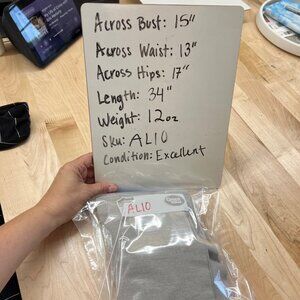 Across Bust: 15"
Across Waist: 13"
Across Hips: 17"
Length: 34"
Weight: 12oz
Sku: AL10
Condition: Excellent
AL10